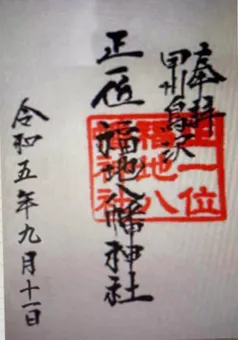 奉拝
甲州鳥沢
正一位 福地八幡神社
令和五年九月十一日
正一位
福地八
幡神社